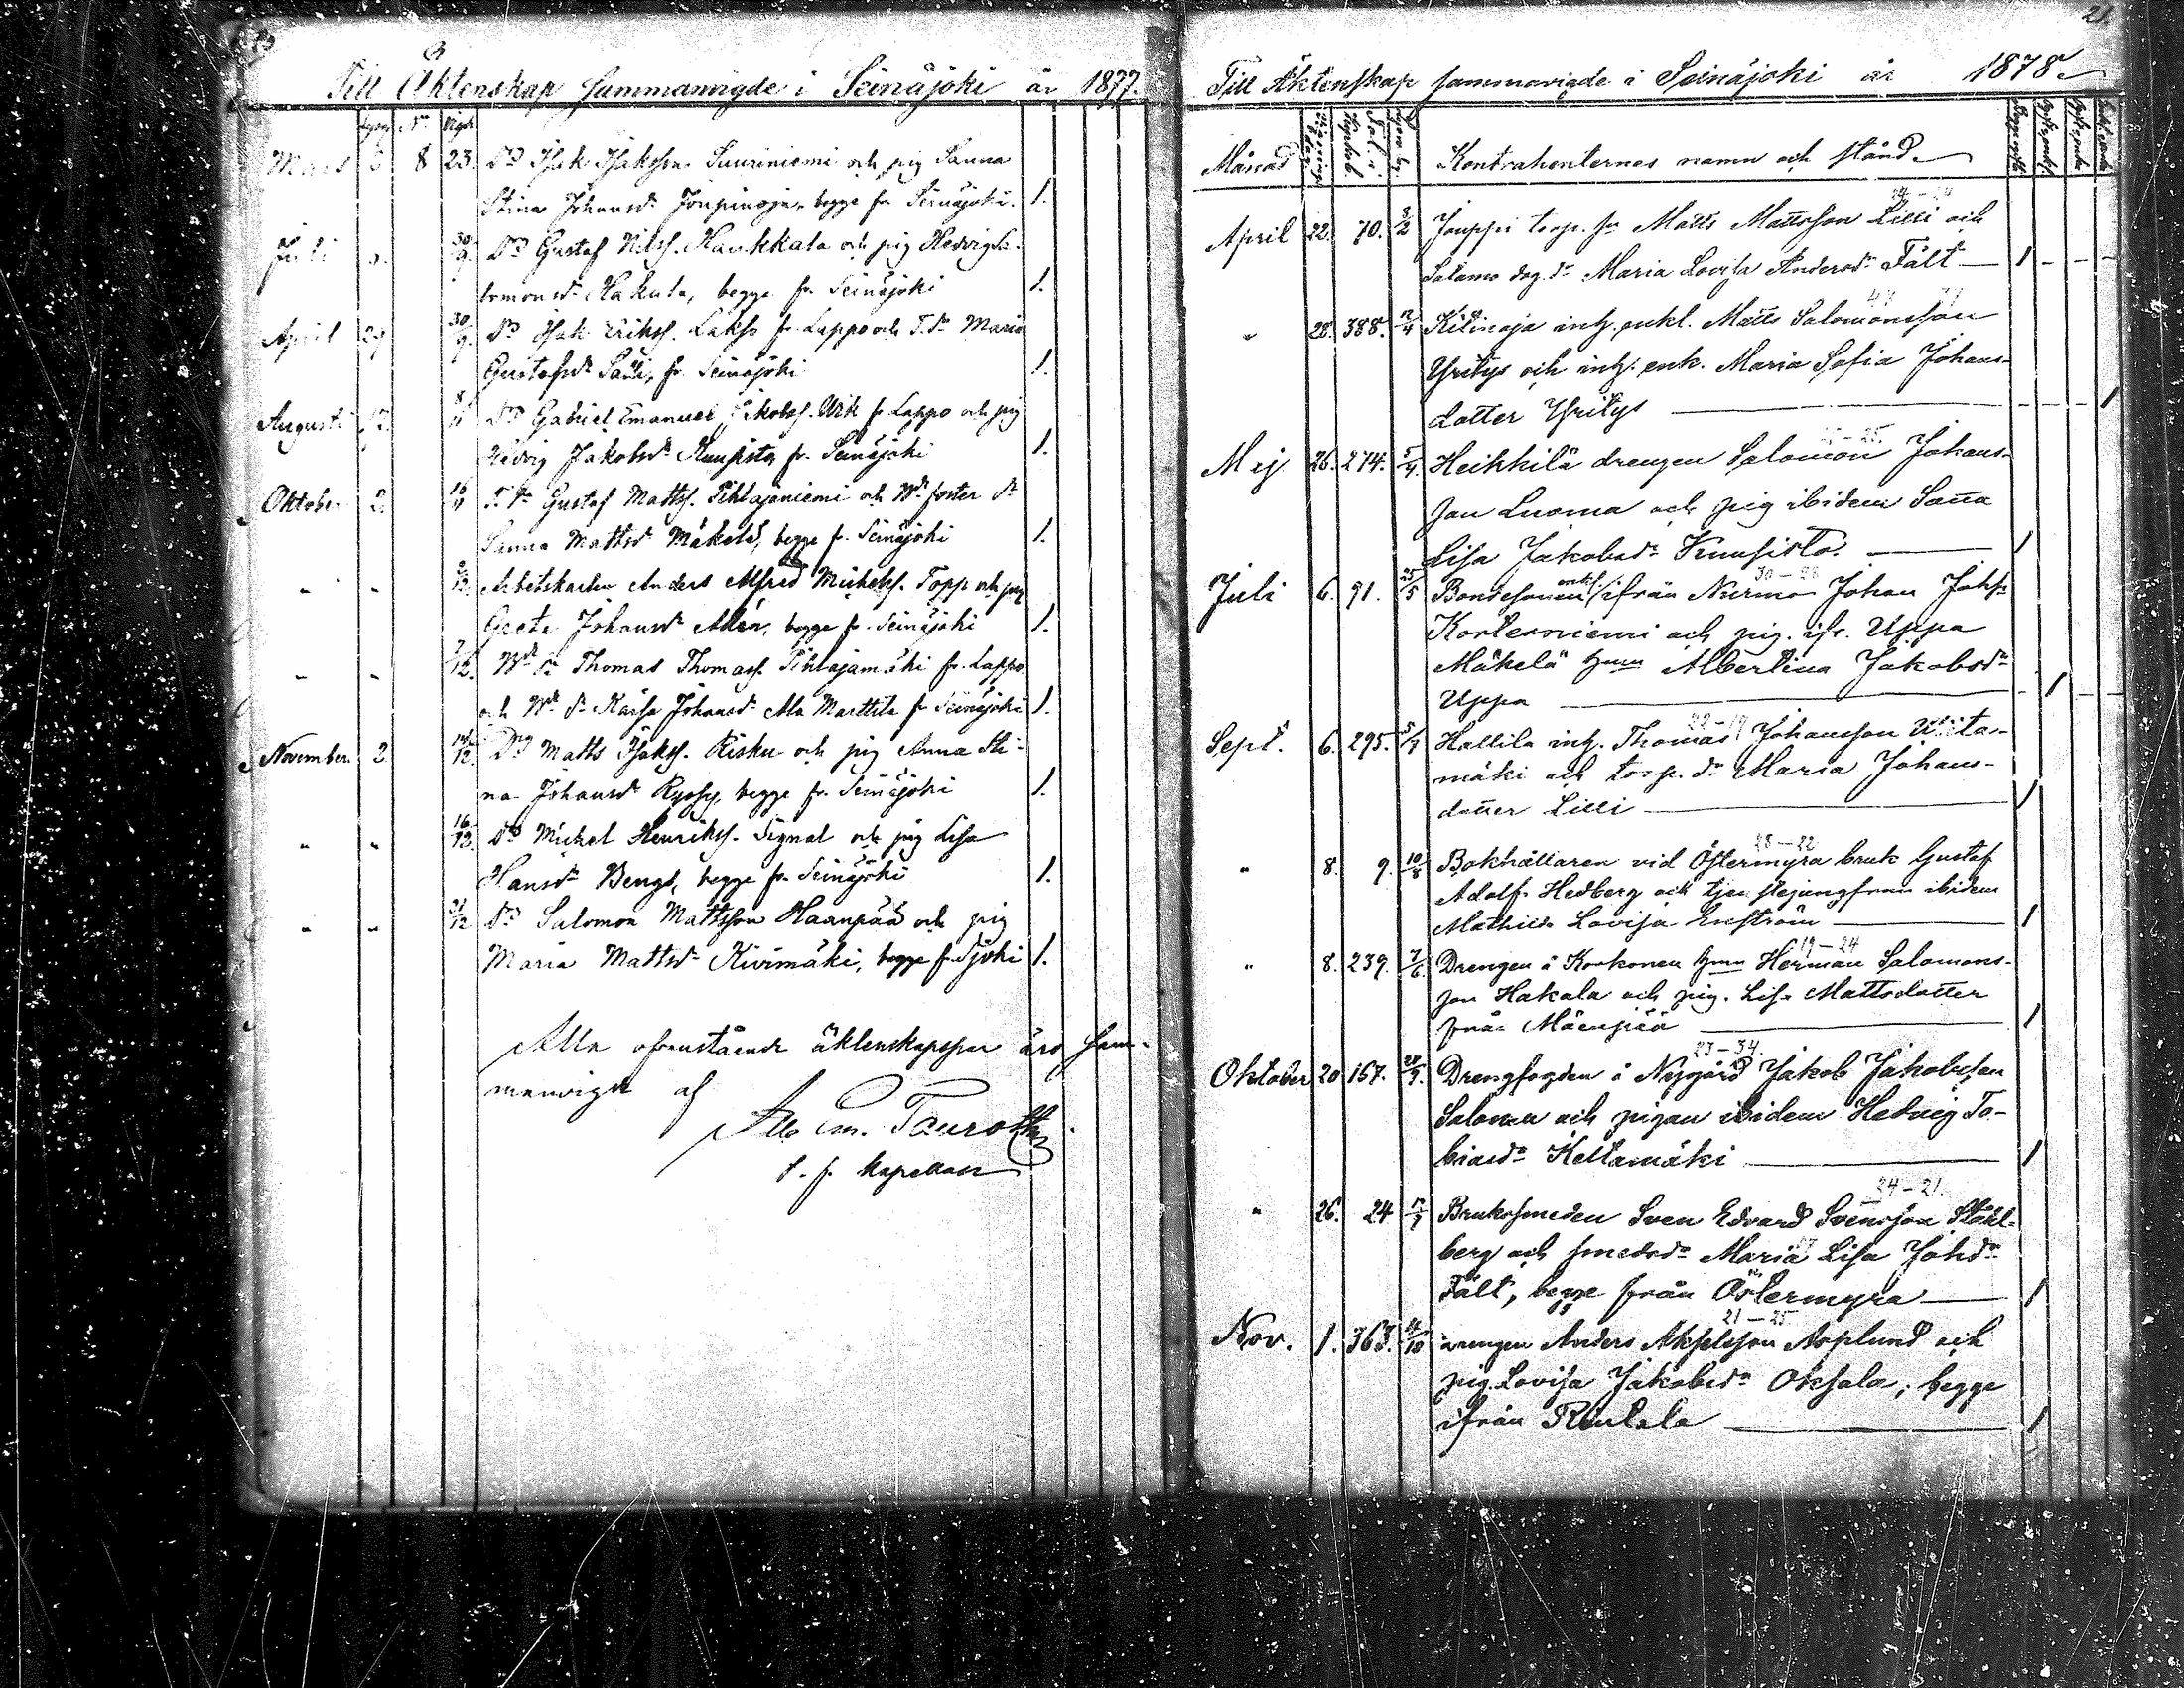 Till Äktenskap Sammanvigde i Seinäjoki år 1877.
Lysn. No Vigde
Mars 3 8 23. Dr Isak Isaksson Suuriniemi och pig Sanna
Stina Johansdr Joupinoja, begge fr Seinäjoki. 1.
Juli 30/9. Dr Gustaf Nilss. Haukkala och pig Hedvig Sa-
lomonsdr Hakala, begge fr Seinäjoki 1.
April 29 30/9. Dr Isak Erikss. Lakso fr Lappo och T. dr Maria
Gustafsdr Säli, fr Seinäjoki 1.
Augusti 12. 8/11 Dr Gabriel Emanuel Jakobss. Uik fr Lappo och pig
Hedvig Jakobsdr Knuusita fr. Seinäjoki 1.
Oktober 2. 16/11 T. Sn Gustaf Matts. Pihlajaniemi och Wd foster dr
Sanna Mattsdr Mäkelä, begge fr. Seinäjoki 1.
" " 2/12. Arbetskarlen Anders Alfred Michelss. Topp och pig
Greta Johansdr Allén, begge fr. Seinäjoki 1.
" " 7/12. Wd Sn Thomas Thomass. Pihlajamäki fr. Lappo
och Wd dr Kaisa Johansdr Ala Marttila fr Seinäjoki 1.
November 2. 14/12. Dr Matts Isakss. Risku och pig Anna Sti-
na Johansdr Ryssy, begge fr. Seinäjoki 1.
" " 16/12. Dr Michel Henrikss. Signal och pig Lisa
Hansdr Bengs, begge fr. Seinäjoki 1.
" " 21/12 Dr Salomon Mattsson Haanpää och pig
Maria Mattsdr Kivimäki, begge fr Sjöki 1.
Alla ofvanstående äktenskapspar äro sam-
manvigde af
Tauroth
t. f. kapellan
21.
Till Äktenskap sammanvigde i Seinäjoki år 1878.
Månad Kontrahenternes namn och stånd.
24-24
April 22. 70. 3/2 Jouppi torp. sn Matts Mattsson Lilli och
Salamo dog. dr Maria Lovisa Andersdr Fält — 1 - - -
47
" 28. 388. 12/4 Kilinoja inh. enkl. Matts Salomonsson
Yritys och inh. enk. Maria Sofia Johans-
dotter Yritys — 1
25-25.
Mej 26. 274. 5/4. Heikkilä drengen Salomon Johans-
son Luoma och pig ibidem Sanna
Lisa Jakobsdr Knuusisto. — 1
30-28
Juli 6. 91. 25/5 Bondesonen enkl. ifrån Nurmo Johan Johss.
Korteniemi och pig. ifr. Uppa
Mäkelä hmn Albertina Jakobsdr
Uppa — 1
22-19
Sept. 6. 295. 5/7 Hallila inh. Thomas Johansson Wiita-
mäki och torp. dr Maria Johans-
dotter Lilli — 1
28-22
" 8. 9. 10/8 Bokhållaren vid Östermyra bruk Gustaf
Adolf Hedberg och tjenstejungfrun ibidem
Mathilda Lovisa Enström — 1
19-24
" 8. 239. 7/6. Drengen å Korkonen hmn Herman Salomons-
son Hakala och pig. Lisa Mattsdotter
från Mäenpää — 1
23-34.
Oktober 20 167. 28/9. Drengfogden å Nygård Jakob Jakobsson
Salonen och pigan ibidem Hedvig To-
biasdr Keltamäki — 1
24-21.
" 26. 24 Bruksmeden Sven Edvard Svensson Ståhl-
berg och smedsdr Maria Lisa Johsdr
Fält, begge från Östermyra — 1
21-25
Nov. 1. 363. drengen Anders Akselsson Asplund och
pig. Lovisa Jakobsdr Oksala, begge
ifrån Rintala — 1